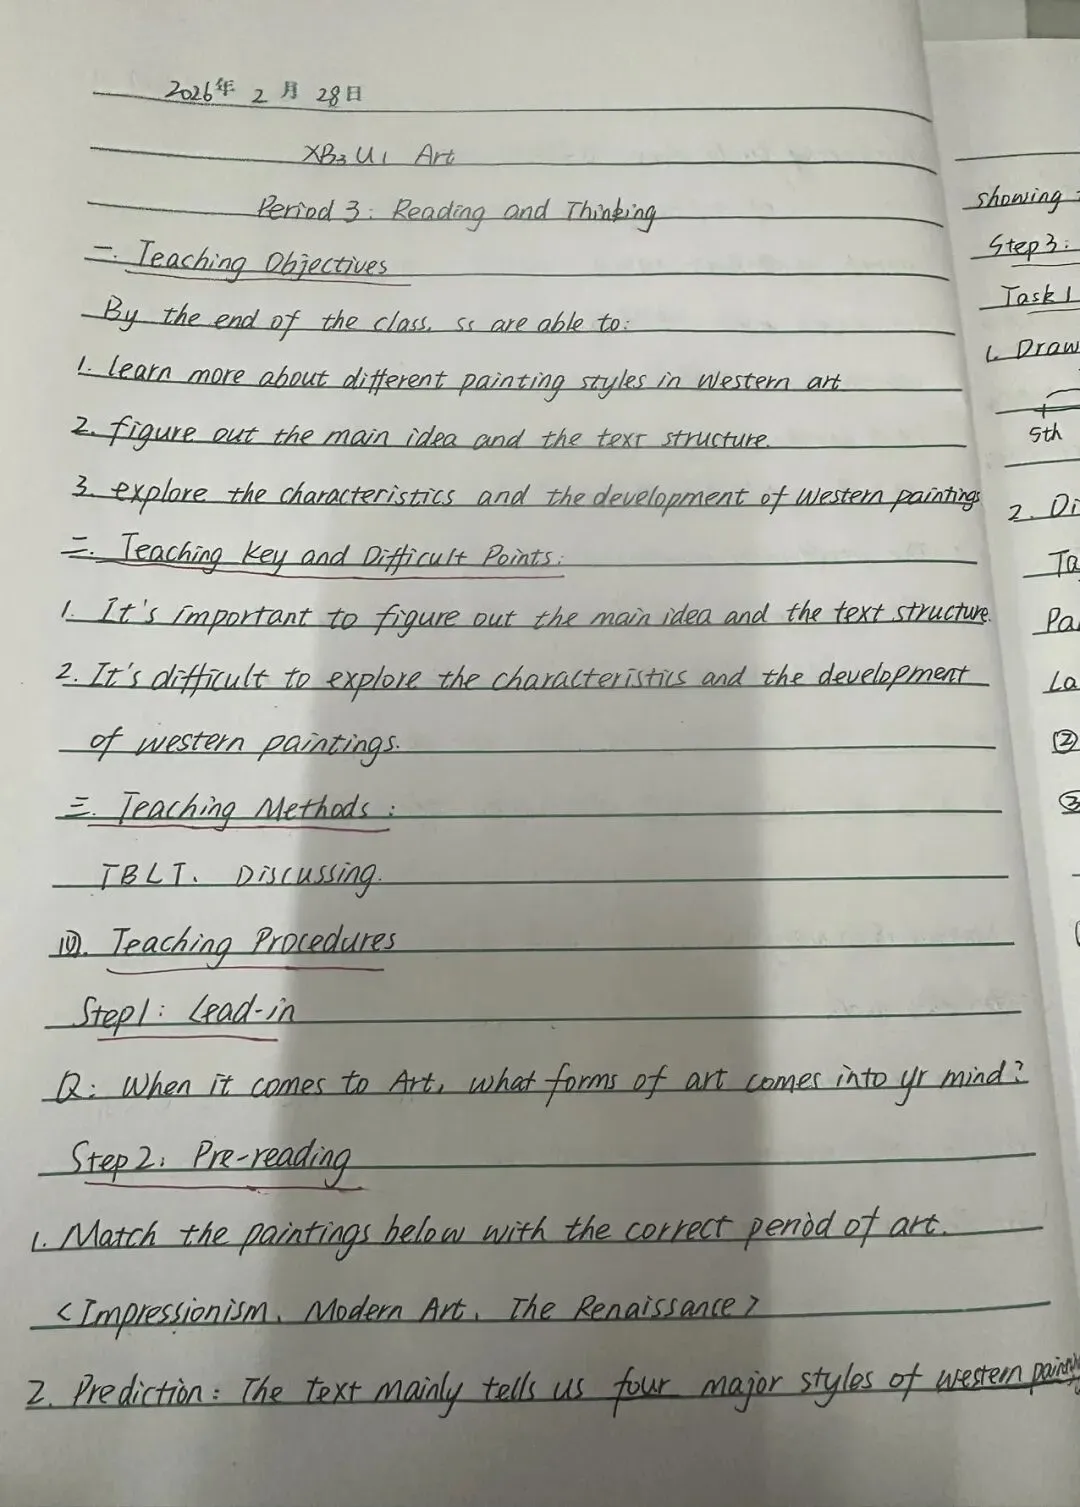 2026年 2 月 28日
XB3 U1 Art
Period 3: Reading and Thinking
一. Teaching Objectives
By the end of the class, ss are able to:
1. learn more about different painting styles in Western art
2. figure out the main idea and the text structure.
3. explore the characteristics and the development of Western paintings
二. Teaching Key and Difficult Points:
1. It's important to figure out the main idea and the text structure.
2. It's difficult to explore the characteristics and the development
of western paintings.
三. Teaching Methods:
TBLT、Discussing.
四. Teaching Procedures
Step1: Lead-in
Q: When it comes to Art, what forms of art comes into yr mind?
Step2: Pre-reading
1. Match the paintings below with the correct period of art.
<Impressionism、Modern Art、The Renaissance>
2. Prediction: The text mainly tells us four major styles of western
showing
Step3:
Task1
1. Draw
5th
2. Di
Ta
Pa
La
②
③